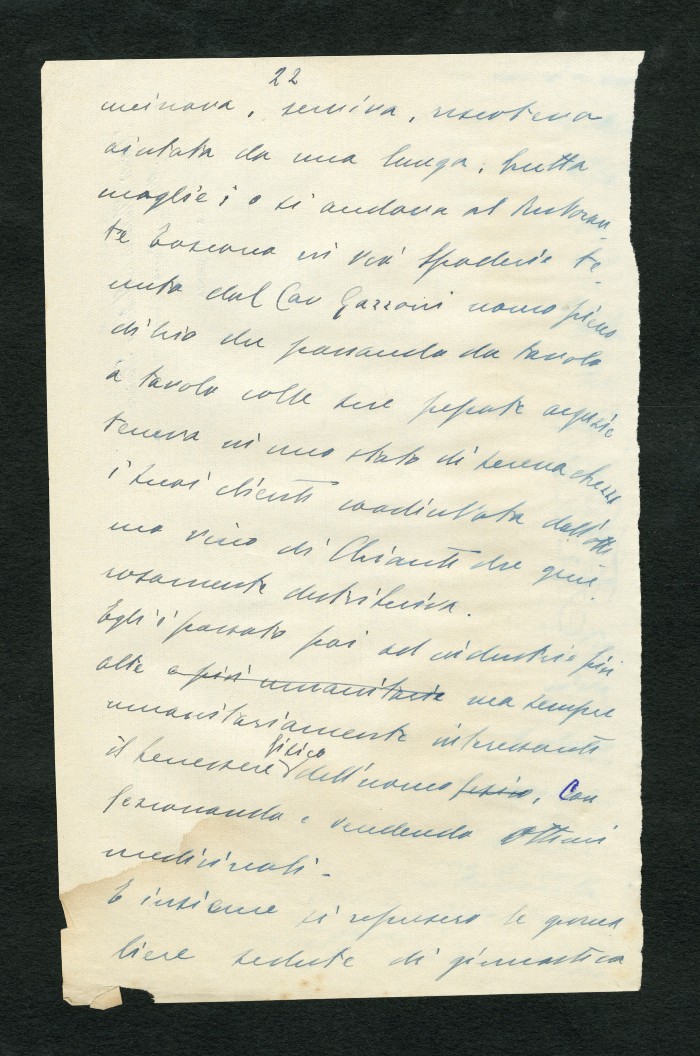 22
cucinava, serviva, riscoteva
aiutata da una lunga, brutta
moglie; o si andava al Ristoran
te Toscana in Via Spaderie te
nuto dal Cav Gazzoni uomo pieno
di brio che passando da tavolo
a tavolo colle sue pepate arguzie
teneva in uno stato di serena ebrezza
i suoi clienti coadiuvata dall'otti
mo vino di Chianti che gene
rosamente distribuiva.
Egli è passato poi ad industrie più
alte e più umanitarie ma sempre
umanitariamente interessanti
fisico
il benessere dell'uomo fisico, Con
fezionando e vendendo ottimi
medicinali.
E insieme si ripresero le giorna
liere sedute di ginnastica